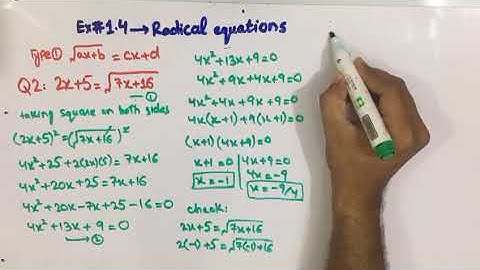 Ex#1.4→Radical equations
Type① √ax+b = cx+d
Q2: 2x+5=√7x+16
→①
taking square on both sides
(2x+5)²=(√7x+16)²
4x²+25+2(2x)(5)=7x+16
4x²+20x+25=7x+16
4x²+20x-7x+25-16=0
4x²+13x+9=0
→②
4x²+13x+9=0
4x²+9x+4x+9=0
4x²+4x+9x+9=0
4x(x+1)+9(x+1)=0
(x+1)(4x+9)=0
x+1=0 | 4x+9=0
x=-1 | 4x=-9
x=-9/4
check:
2x+5=√7x+16
2(-1)+5=√7(-1)+16